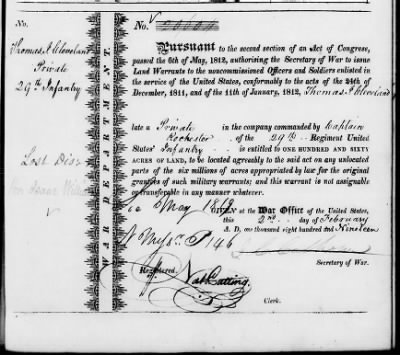 No.
Thomas J. Cleveland
Private
29th Infantry
WAR DEPARTMENT.
No.
Pursuant to the second section of an Act of Congress,
passed the 6th of May, 1812, authorising the Secretary of War to issue
Land Warrants to the noncommissioned Officers and Soldiers enlisted in
the service of the United States, conformably to the acts of the 24th of
December, 1811, and of the 11th of January, 1812, Thomas J. Cleveland
late a Private in the company commanded by Captain
Rochester of the 29th Regiment United
States' Infantry is entitled to ONE HUNDRED AND SIXTY
ACRES OF LAND, to be located agreeably to the said act on any unlocated
parts of the six millions of acres appropriated by law for the original
grantees of such military warrants; and this warrant is not assignable
or transferable in any manner whatever.
May 1819
GIVEN at the War Office of the United States,
this 2nd day of February
A. D. one thousand eight hundred and Nineteen
P 146
Secretary of War.
Registered.
Nat Cutting.
Clerk.